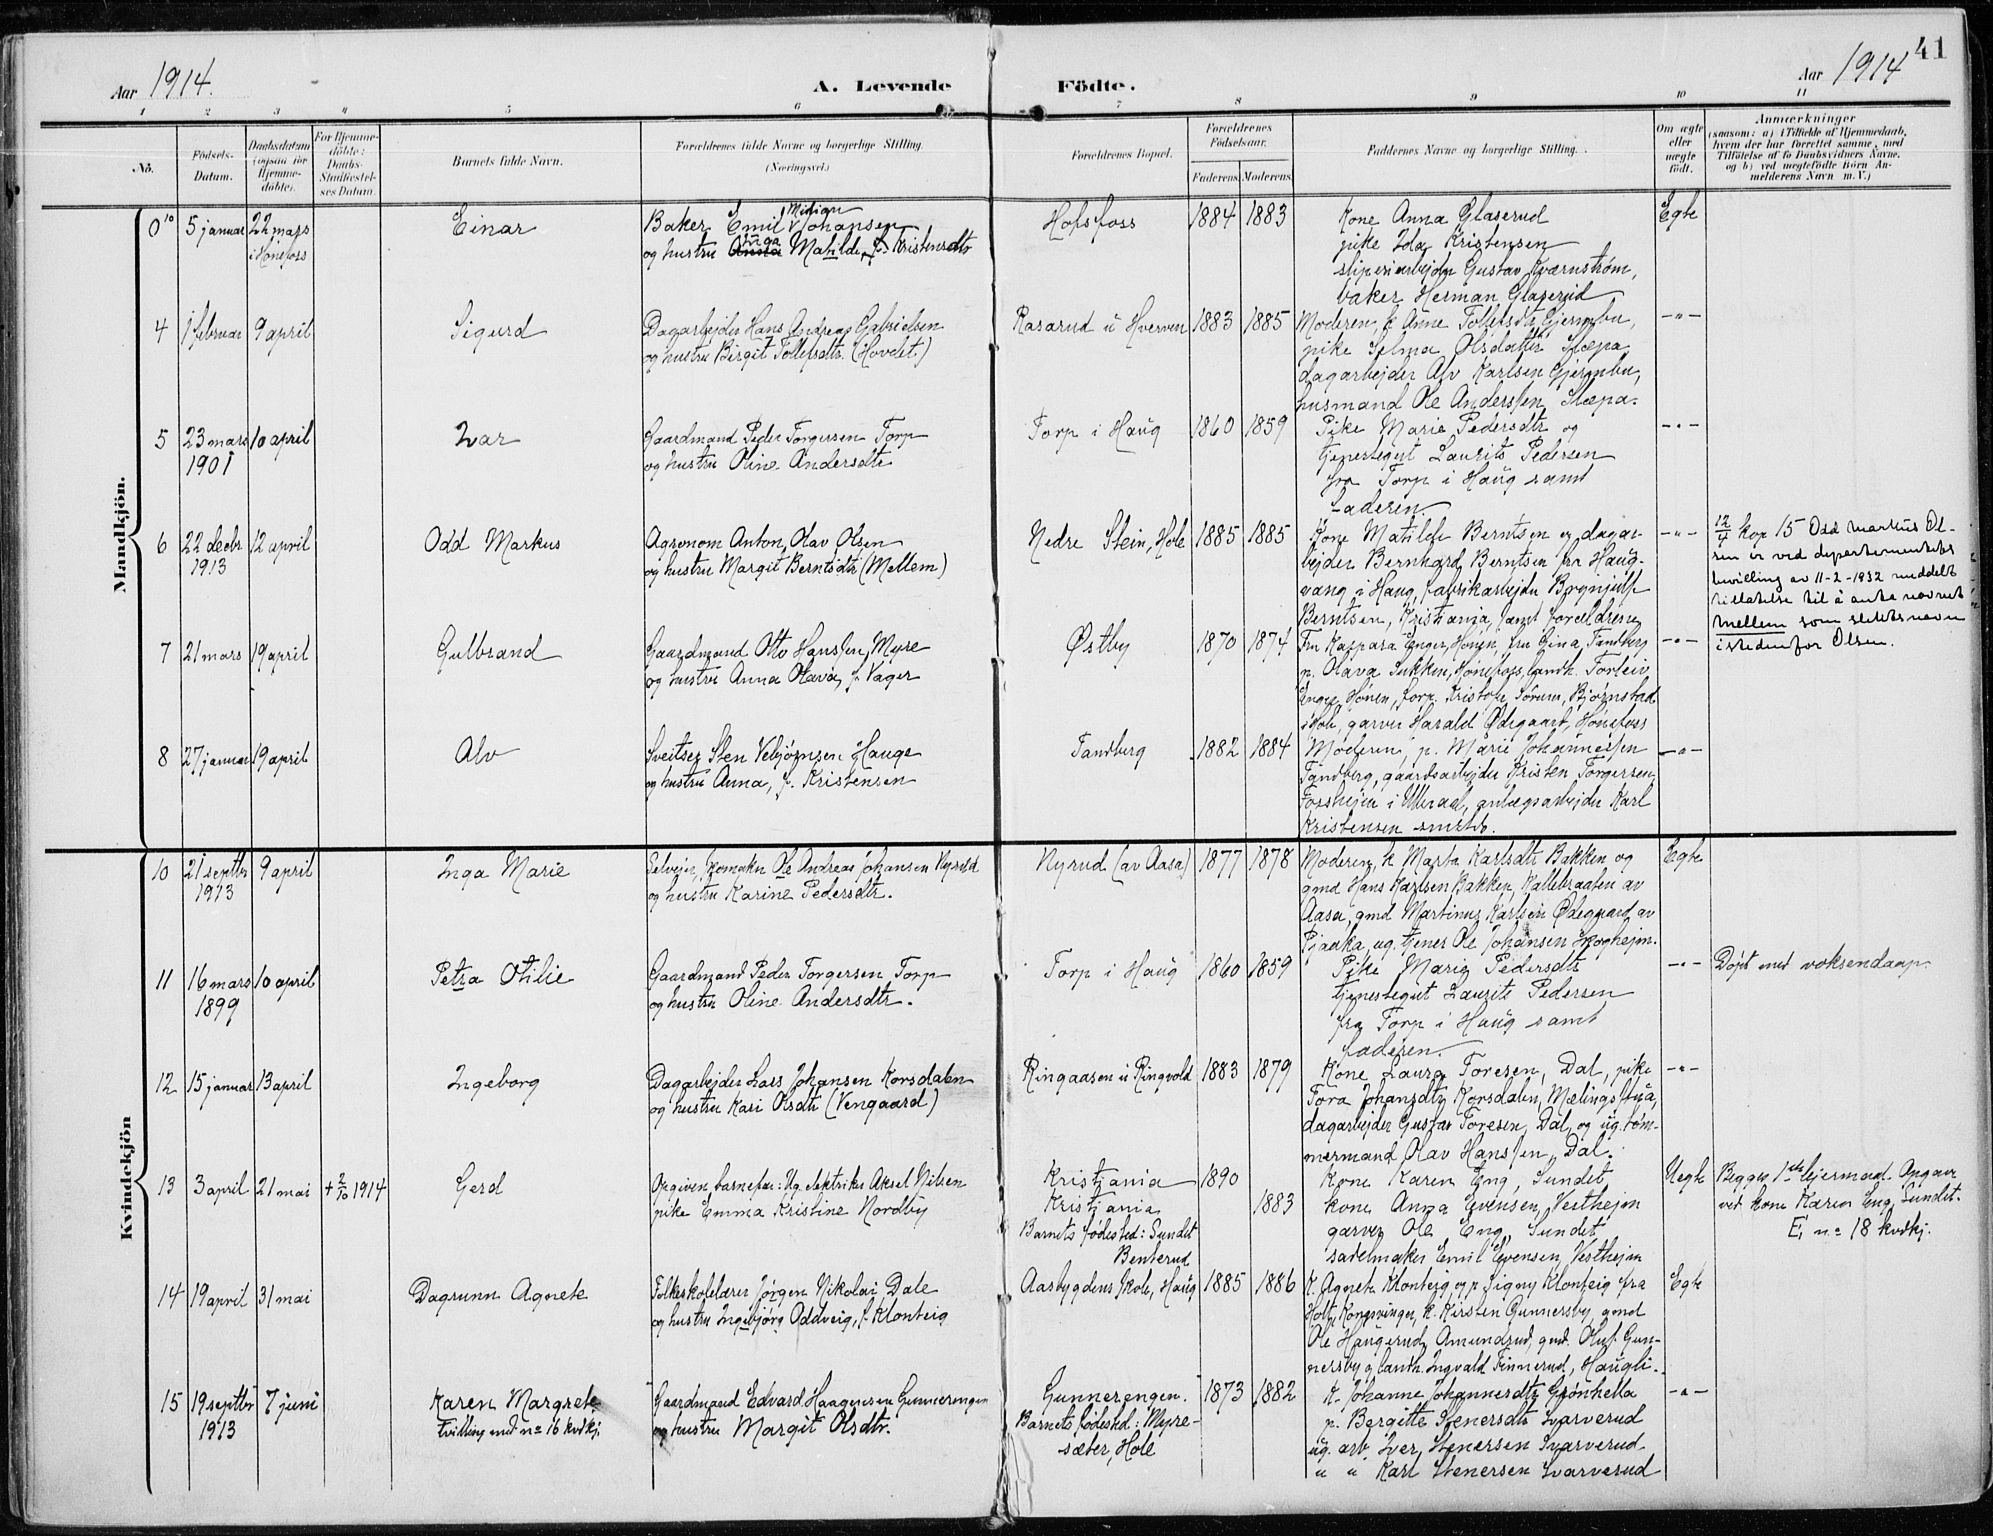 41
Aar 1914.
A. Levende Födte.
Aar 1914
1 2 3 4 5 6 7 8 9 10 11
Nö.
Födsels-
Datum.
Daabsdatum
(ogsaa for
Hjemme-
döbte).
For Hjemme-
döbte:
Daabs-
Stadfæstel-
ses Datum.
Barnets fulde Navn.
Forældrenes fulde Navne og borgerlige Stilling.
(Næringsvei.)
Forældrenes Bopæl.
Forældrenes
Födselsaar.
Faderens. Moderens.
Faddernes Navne og borgerlige Stilling.
Om ægte
eller
uægte
födt.
Anmærkninger
(saasom: a) i Tilfælde af Hjemmedaab,
hvem der har forrettet samme, med
Tilföielse af to Daabsvidners Navne,
og b) ved uægtefödte Börn An-
melderens Navn m. V.)
Mandkjön.
5 januar
22 mars
i Hönefoss
Einar
Baker Emil Johansen
og hustru Inga Matilde, f. Kristensdtr
Hofsfoss
1884 1883
Kone Anna Glaserud
pike Ida Kristensen
sliperiarbejder Gustav Kværnstrøm,
baker Herman Glaserud
Egte
4
1 februar
9 april
Sigurd
Dagarbejder Hans Andreas Gabrielsen
og hustru Birgit Tollefsdtr. (Hovdet)
Rasarud u Hverven
1883 1885
Moderen, k. Anne Tollefsdtr Gjermbu,
pike Selma Olsdatter Stæpa
dagarbejder Alv Karlsen Gjermbu,
husmand Ole Anderssen Stæpa.
-"-
5
23 mars
1901
10 april
Ivar
Gaardmand Peder Torgersen Torp
og hustru Oline Andersdtr
Torp i Haug
1860 1859
Pike Marie Pedersdtr og
tjenestegut Laurits Pedersen
fra Torp i Haug samt
faderen.
-"-
6
22 decbr
1913
12 april
Odd Markus
Agronom Anton Olav Olsen
og hustru Margit Berntsdtr (Mellem)
Nedre Stein, Hole
1885 1885
Kone Matilde Berntsen og dagar-
bejder Bernhard Berntsen fra Haug-
vang i Haug, fabrikarbejder Brynjulf
Berntsen, Kristiania, samt forældrene
-"-
12/4 kop 15 Odd Markus Ol-
sen er ved departementets
bevilling av 11-2-1932 meddelt
tillatelse til å anta navnet
Mellem som slektsnavn
istedenfor Olsen.
7
21 mars
19 april
Gulbrand
Gaardmand Otto Hanssen Myre
og hustru Anna Olava, f. Vager
Østby
1870 1874
Fru Kaspara Enger, Hønen, fru Gina Tandberg
p. Olava Sukken, Hönefoss, landh. Torleiv
Enger, Hønen, forp. Kristofer Sörum, Bjørnstad
i Hole, garver Harald Ødegaard, Hönefoss
-"-
8
27 januar
19 april
Alv
Sveitser Sten Vebjørnsen Hauge
og hustru Anna, f. Kristensen
Tandberg
1882 1884
Moderen, p. Marie Johannessen
Tandberg, gaardsarbejder Kristen Torgersen
Fossheim i Ulleraal, anlægsarbejder Karl
Kristensen smstds.
-"-
Kvindekjön
10
21 septbr
1913
9 april
Inga Marie
Selvejer, skomaker Ole Andreas Johansen Nyrud
og hustru Karine Pedersdtr.
Nyrud (av Aasa)
1877 1878
Moderen, k. Marta Karlsdtr Bakken og
gmd Hans Karlsen Bakken, Kallebraaten av
Aasa, gmd Martinus Karlsen Ødegaard av
Pjaaka, ug. tjener Ole Johansen Skoghejm.
Egte
11
16 mars
1899
10 april
Petra Otilie
Gaardmand Peder Torgersen Torp
og hustru Oline Andersdtr.
Torp i Haug
1860 1859
Pike Marie Pedersdtr
tjenestegut Laurits Pedersen
fra Torp i Haug samt
faderen.
-"-
Døpt med voksendaap.
12
15 januar
13 april
Ingeborg
Dagarbejder Lars Johansen Korsdalen
og hustru Kari Olsdtr (Vengaard)
Ringaasen u Ringvold
1883 1879
Kone Laura Toresen, Dal, pike
Tora Johansdtr Korsdalen, Mælingsstua,
dagarbejder Gustav Toresen, Dal, og ug. töm-
mermand Olav Hanssen, Dal.
-"-
13
3 april
21 mai
+ 2/10 1914
Gerd
Opgiven barnefar: Ug. elektriker Aksel Nilsen
pike Emma Kristine Nordby
Kristiania
Kristiania
Barnets fødested: Sundet
Benterud
1890
1883
Kone Karen Eng, Sundet
kone Anna Evensen, Vesthejm
garver Ole Eng, Sundet
sadelmaker Emil Evensen, Vesthejm
Uegte
Begges 1ste lejermaal. Angaar
ved kone Karen Eng, Sundet.
Ei no 18 kvdkj.
14
19 april
31 mai
Dagrunn Agnete
Folkeskolelærer Jörgen Nikolai Dale
og hustru Ingebjørg Oddveig, f. Klonteig
Aasbygdens skole, Haug
1885 1886
K. Agnete Klonteig og p. Signy Klonteig fra
Holt, Kongsvinger, k. Kirsten Gunnersby, gmd
Ole Haugerud, Amundrud, gmd Oluf Gun-
nersby og landh. Ingvald Finnerud, Haugli.
Egte
15
19 septbr
1913
7 juni
Karen Margrete
Tvilling med no 16 kvdkj.
Gaardmand Edvard Haagensen Gunnerengen
og hustru Margit Olsdtr.
Gunnerengen.
Barnets fødested: Myre-
sæter, Hole
1873 1882
K. Johanne Johannesdtr Grönhella
p. Bergitte Stenersdtr Svarverud
ug. arb. Iver Stenersen Svarverud
u u Karl Stenersen Svarverud
-"-